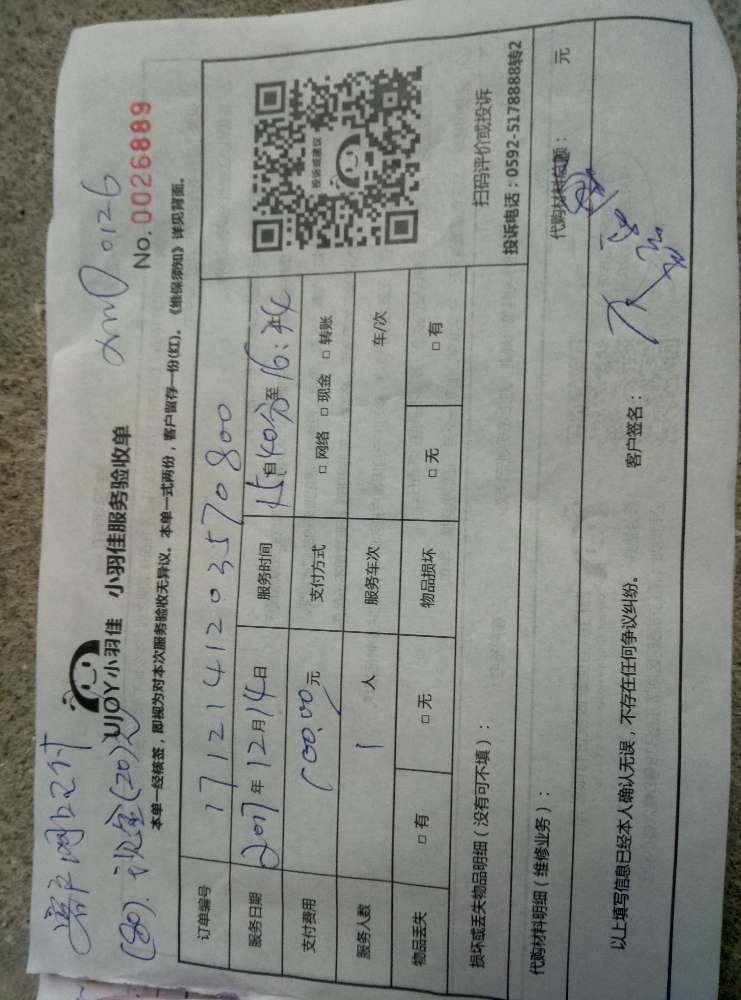 客户网上支付
(80). 现金(20)元
xmD 0126
UJOY小羽佳 小羽佳服务验收单
No. 0026889
本单一经核签，即视为对本次服务验收无异议。本单一式两份，客户留存一份(红)。《维保须知》详见背面。
订单编号 1712141203570800
服务日期 2017年12月14日 服务时间 15自40分至16:44
支付费用 100.00元 支付方式 □ 网络 □ 现金 □ 转账
服务人数 1 人 服务车次 车/次
物品丢失 □ 有 □ 无 物品损坏 □ 无 □ 有
投诉或建议
扫码评价或投诉
投诉电话：0592-5178888转2
损坏或丢失物品明细（没有可不填）：
代购材料明细（维修业务）： 代购材料总额： 元
以上填写信息已经本人确认无误，不存在任何争议纠纷。 客户签名：